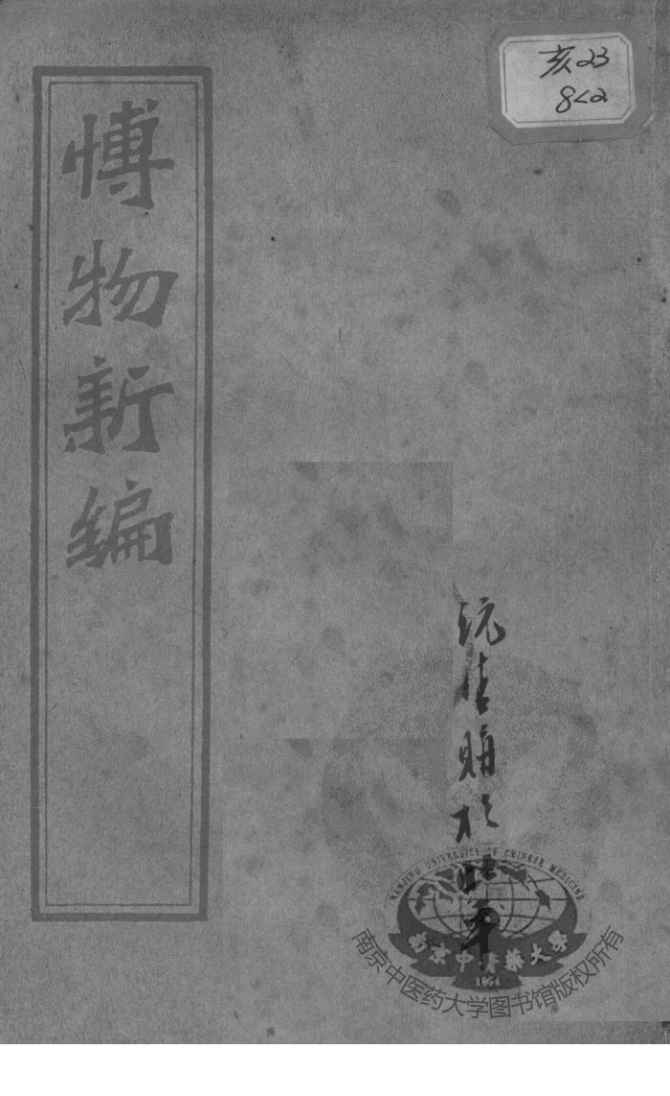 博物新编
亥23
8<2
NANJING UNIVERSITY OF CHINESE MEDICINE
南京中医药大学
1954
南京中医药大学图书馆版权所有